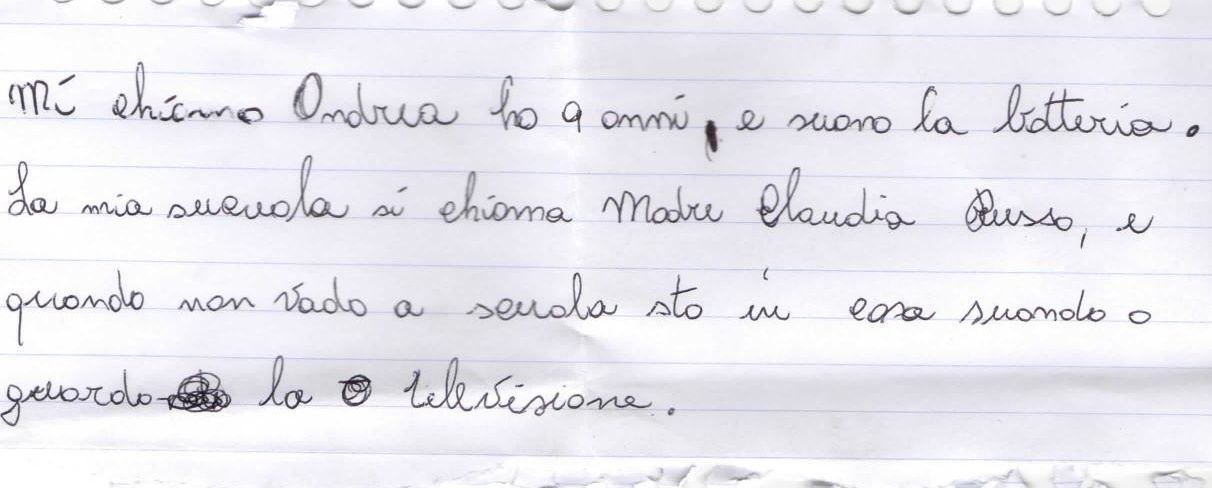 Mi chiamo Andrea ho 9 anni, e suono la batteria.
La mia scuola si chiama Madre Claudia Russo, e
quando non vado a scuola sto in casa suondo o
guardo la televisione.